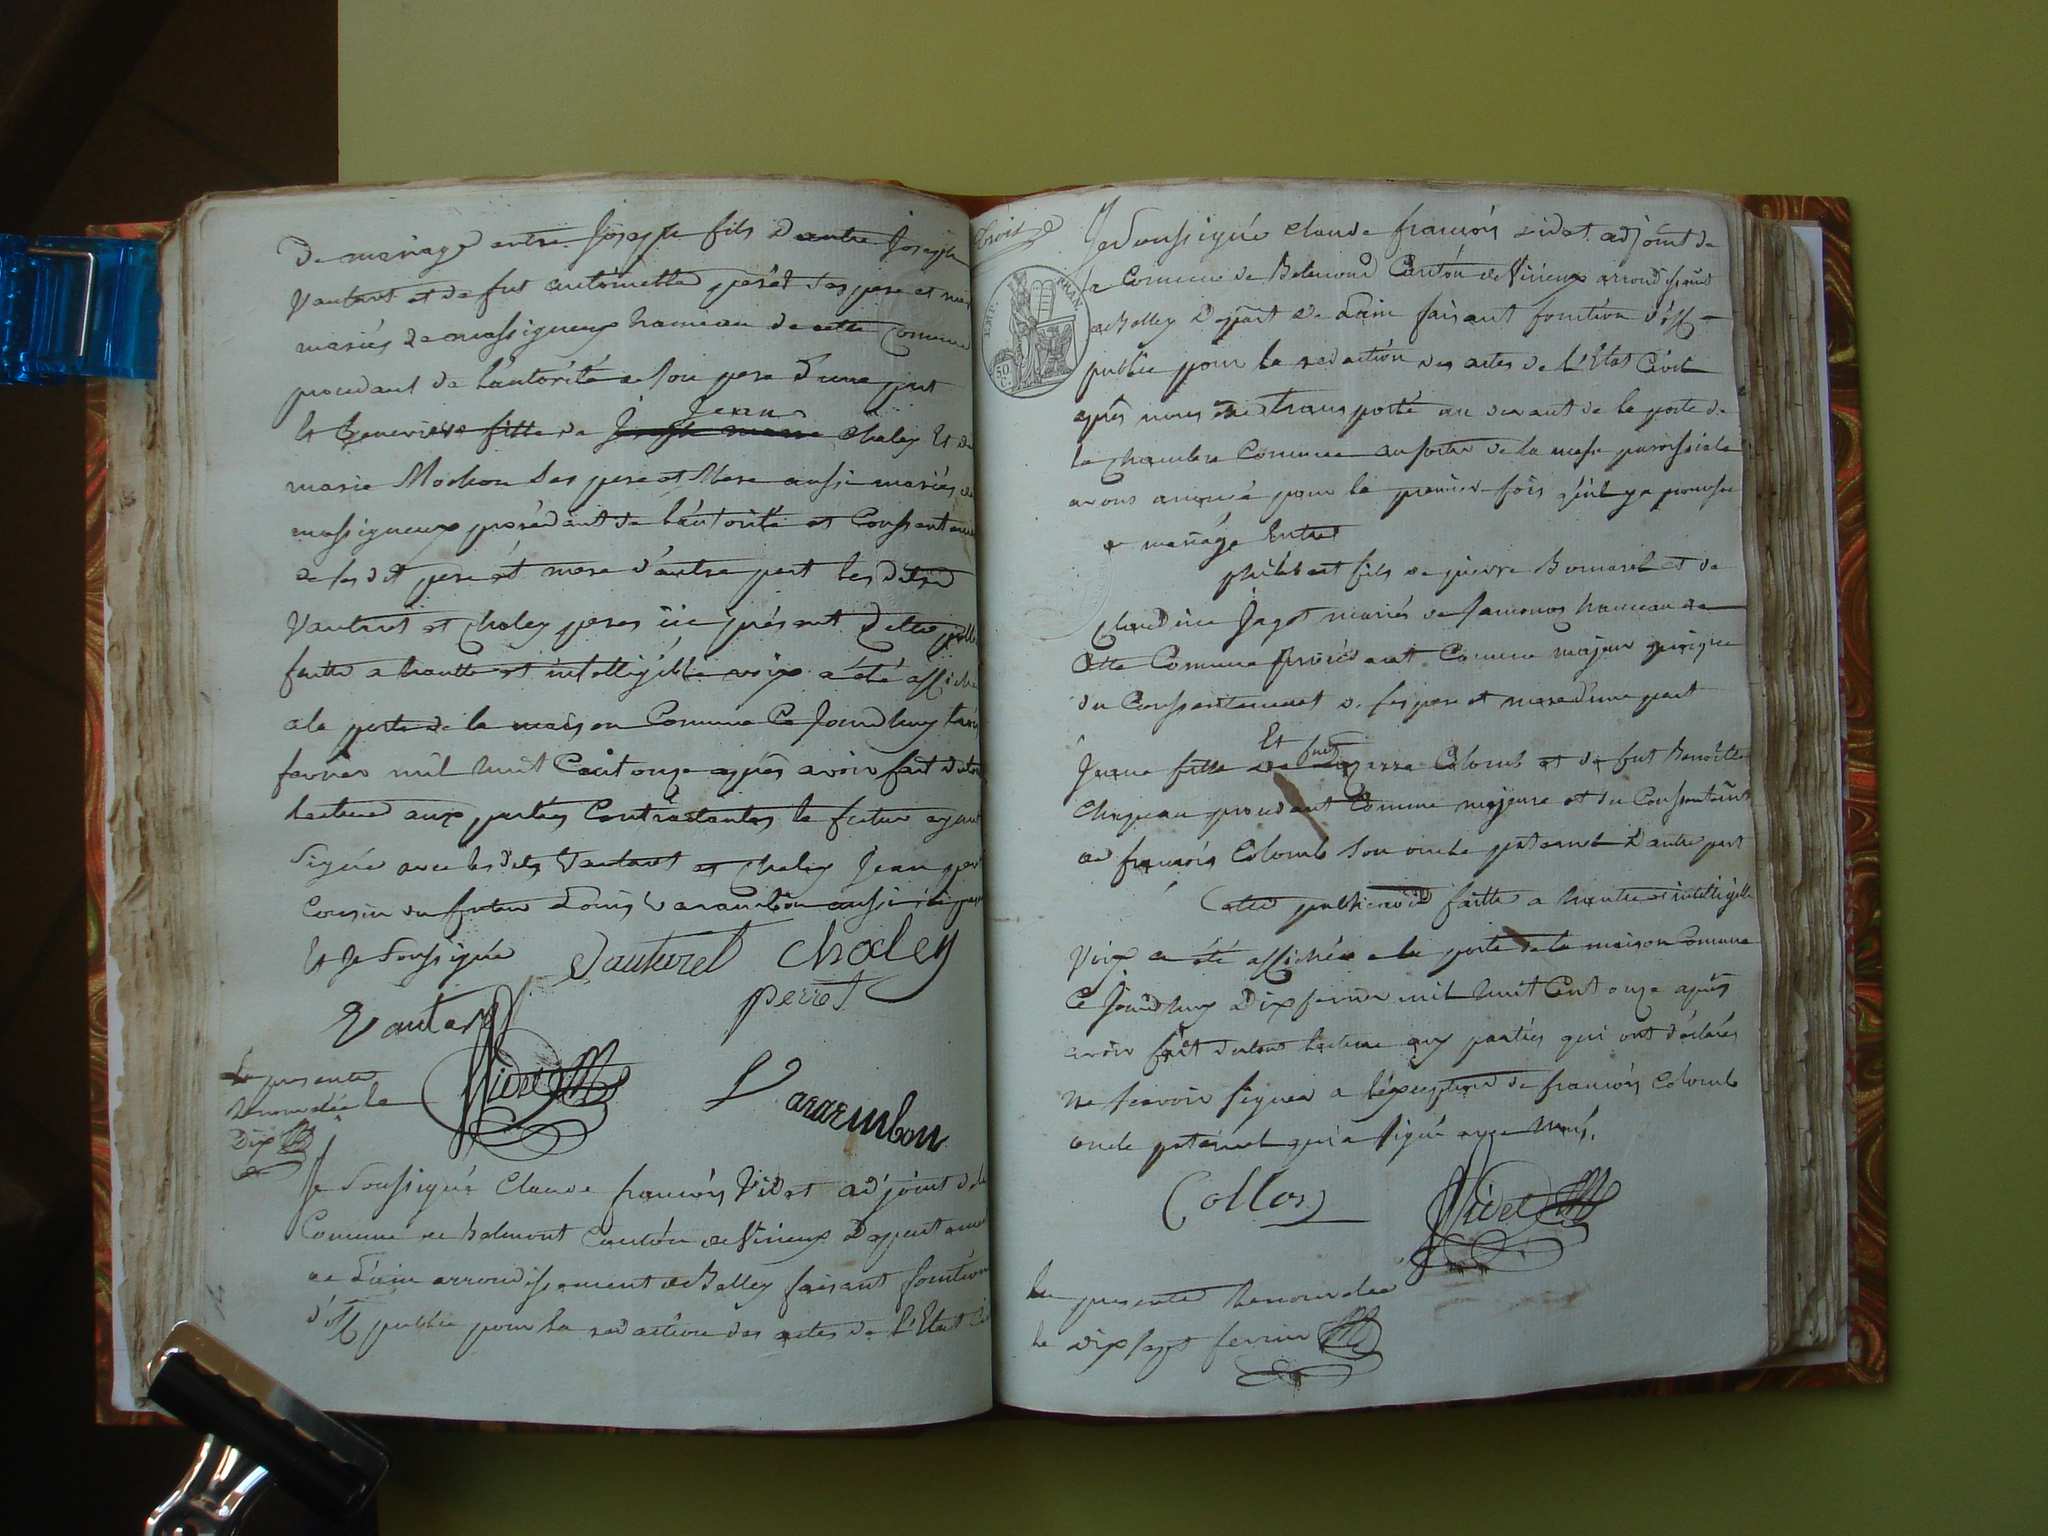 De mariage entre Joseph fils d'autre Joseph
Vautaret et de fut antoinette perét ses pere et mere
mariés de massigneux hameau de cette Comune
procedant de l'autorité de son pere d'une part
Et Genevieve fille de Jean Chaley Et de
marie Mochon ses pere et Mere aussi mariés de
massigneux procédant de l'autorité et Conssentément
de ses dit pere et mere d'autre part les dits
Vautaret et Chaley peres icie présent Cette
faitte a hautte et intelligible voix a été affichée
a la porte de la maison Comune Ce Jourdhuy trois
fevrier mil huit Cent onze après avoir fait du tout
lecture aux parties Contractantes le futur ayant
Signé avec les dits Vautaret et Chaley Jean perret
Cousin du futur Louis Varambon aussi
Et Je Soussigné
Vautaret Chaley
perret
Vautaret
Videt
Varambon
La presente
Renouvelée le
Dix
Je Soussigné Claude francois Videt adjoint de la
Comune de Belmont Cantón de Virieux Departement
de L'ain arrondissement de Belley faisant fonction
d'off public pour la redaction des actes de L'Etat Civil
trois
EMP. FRAN.
50 C.
Je Soussigné Claude francois Videt adjoint de
la Comune de Belmond Cantón de Virieux arrondissement
de Belley Depart de Lain faisant fonction d'off
public pour la redaction des actes de L'Etat Civil
après nous etre transporté au devant de la porte de
la Chambre Comune au sortir de la messe paroissiale
avons anoncé pour la premier fois qu'il y a promesse
de mariage Entre
philibert fils de pierre Bornarel et de
Claudine Jagot mariés de hameau de
Cette Comune procédant Comme majeur quoique
du Conssentement de ses pere et mere d'une part
Et
Jeanne fille de fut pierre Colomb et de fut Benoîtte
procedant Comme majeure et du Conssentement
de francois Colomb Son oncle paternel d'autre part
Cette publication faitte a hautte et intelligible
Voix a été affichée a la porte de la maison Comune
Ce Jourdhuy Dix fevrier mil huit Cent onze après
avoir fait du tout lecture aux parties qui ont déclarés
Ne Scavoir Signer a l'exception de francois Colomb
oncle paternel qui a Signé avec Nous.
Collon
Videt
La presente Renouvelée
le dix sept fevrier